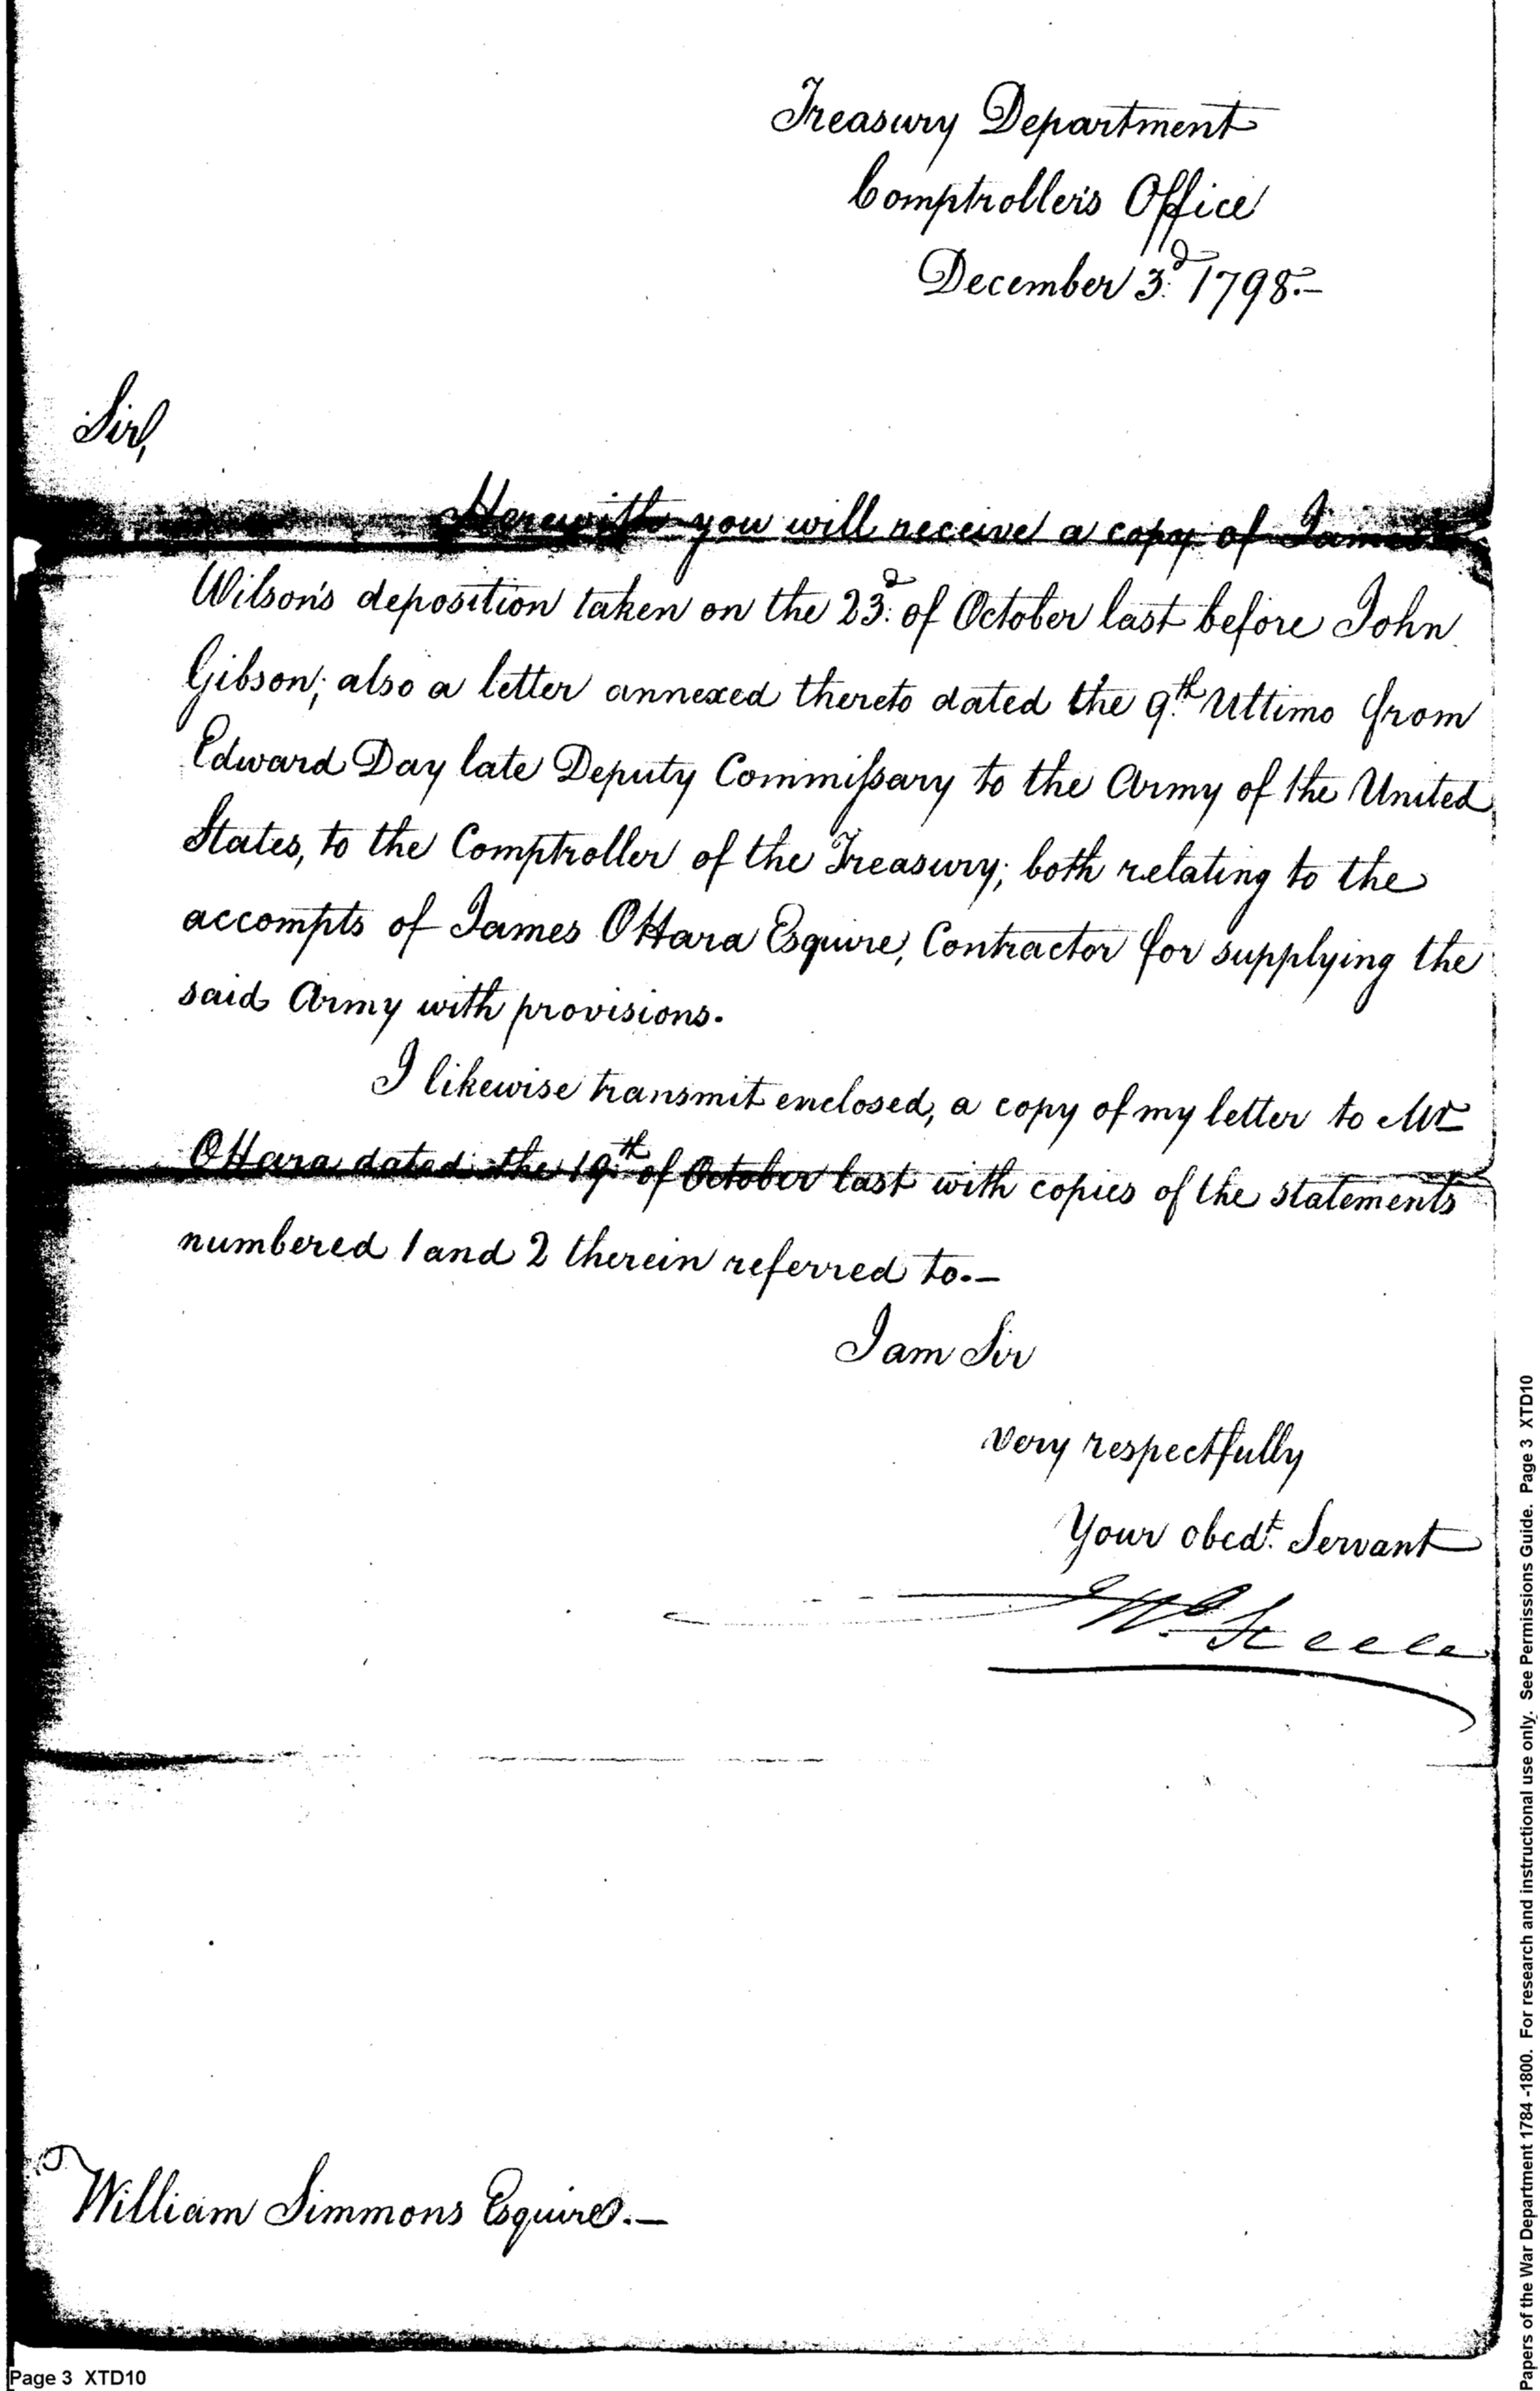 Treasury Department
Comptroller's Office
December 3.d 1798.-
Sir,
Herewith you will receive a copy of James
Wilson's deposition taken on the 23.d of October last before John
Gibson; also a letter annexed thereto dated the 9.th Ultimo from
Edward Day late Deputy Commiſsary to the Army of the United
States, to the Comptroller of the Treasury; both relating to the
accompts of James OHara Esquire, Contractor for supplying the
said Army with provisions.
I likewise transmit enclosed, a copy of my letter to Mr
OHara dated the 19.th of October last with copies of the statements
numbered 1 and 2 therein referred to.-
I am Sir
very respectfully
Your obedt. Servant
Jno. Steele
William Simmons Esquire.-
Page 3 XTD10
Papers of the War Department 1784 -1800. For research and instructional use only. See Permissions Guide. Page 3 XTD10